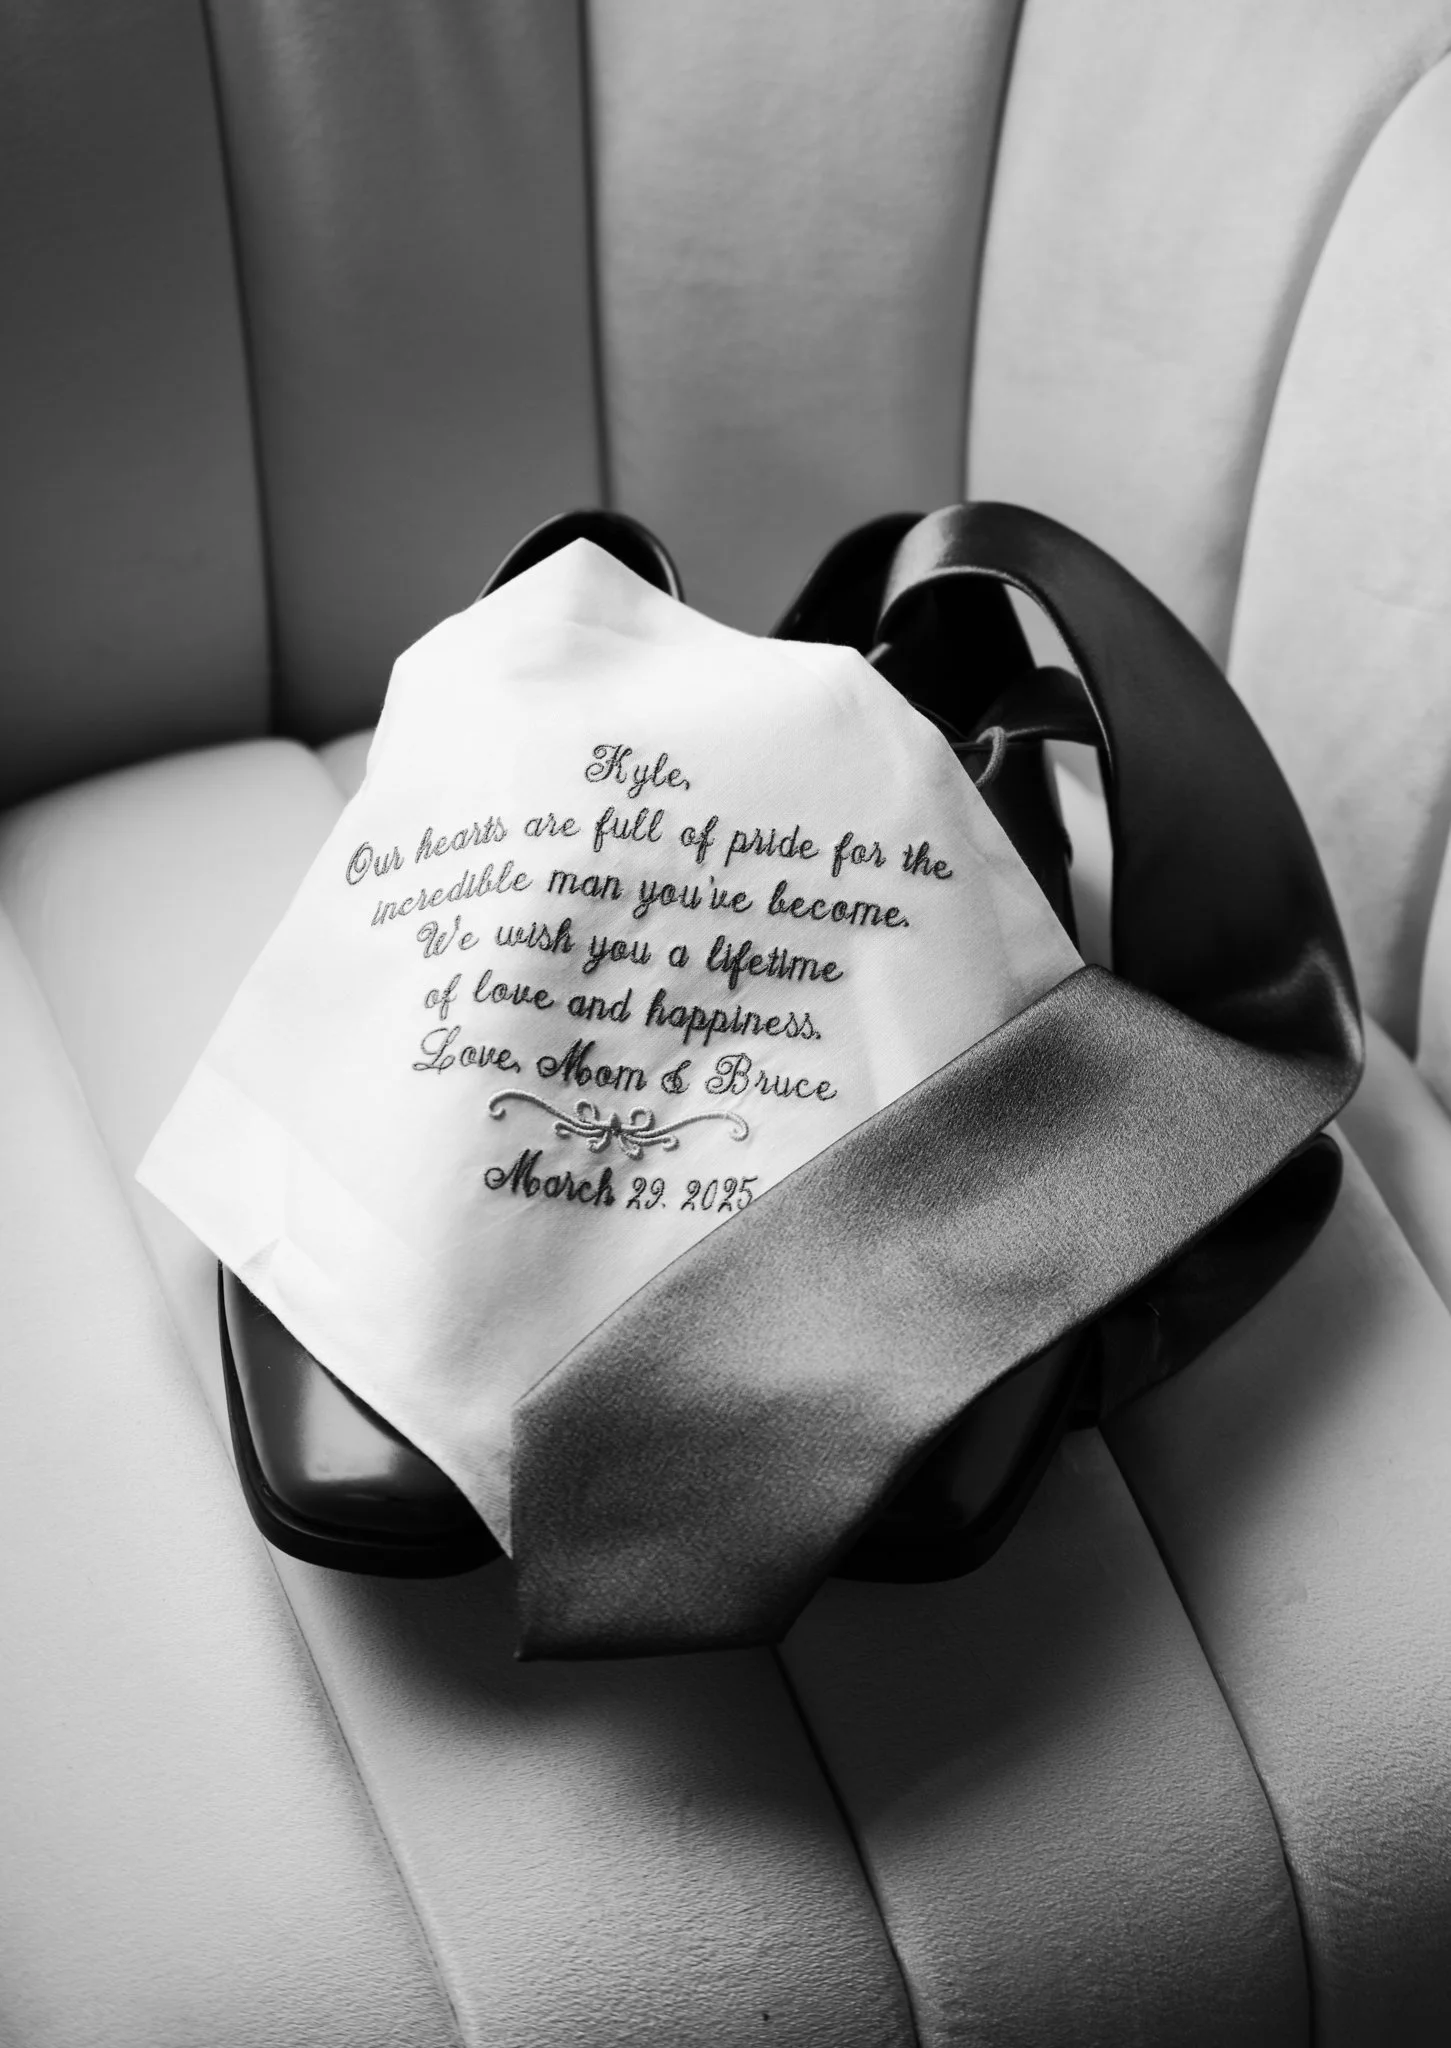 Kyle,
Our hearts are full of pride for the
incredible man you've become.
We wish you a lifetime
of love and happiness.
Love, Mom & Bruce
March 29, 2025